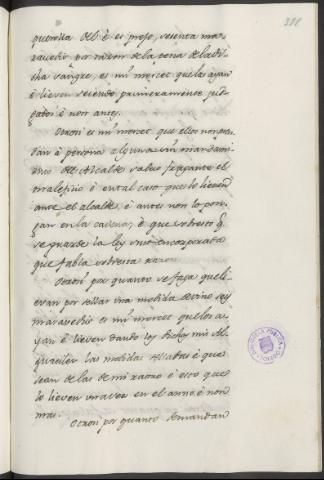 381
querella del é es preso, sesenta ma-
ravedis por razon de la pena de la di-
cha sangre, es mi mercet que los ayan
é lieven seiendo primeramente juz-
gados é non antes.
Otrosi es mi mercet que ellos non pren-
dan á persona alguna sin mandami-
ento del Alcalde salvo fragante el
maleficio é en tal caso que lo lieven
ante el alcalde, é antes non lo pon-
gan en la cadena, é que sobresto
se guarde la ley suso encorporada
que fabla sobresta razon.
Otrosi por quanto se falla que li-
evan por sellar una medida de vino seys
maravedis es mi mercet que los a-
yan é lieven dando los dichos mis Al-
guaciles las medidas selladas é que
sean de las de mi razon é esto que
lo lieven una vez en el anno é non
mas.
Otrosi por quanto demandan